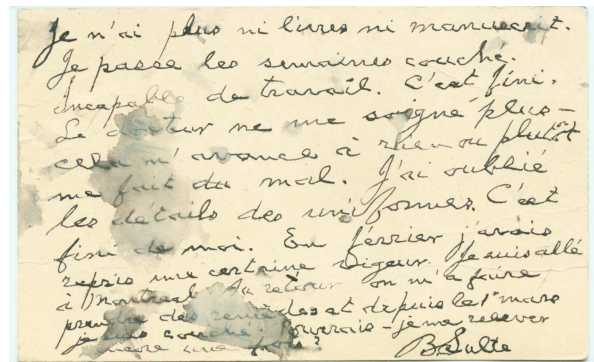 Je n'ai plus ni livres ni manuscrit.
Je passe les semaines couché.
Incapable de travail. C'est fini.
Le docteur ne me soigne plus –
cela n'avance à rien ou plutôt
me fait du mal. J'ai oublié
les détails des uniformes. C'est
fini de moi. En février j'avais
repris une certaine vigueur. Je suis allé
à Montreal. Au retour on m'a faire
prendre des remèdes et depuis le 1er mars
je suis couché. Pourrais-je me relever
encore une fois?
B. Sulte